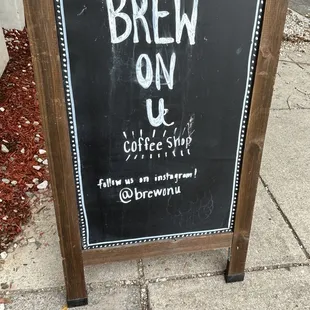 BREW
ON
U
Coffee Shop
follow us on instagram!
@brewonu